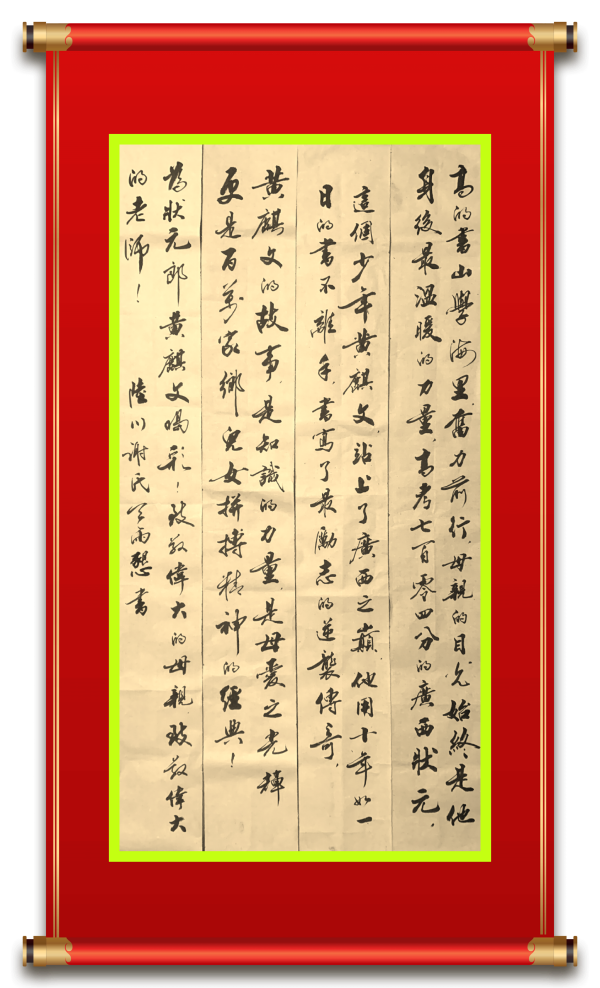 高的書山學海里奮力前行，母親的目光始終是他
身後最溫暖的力量，高考七百零四分的廣西狀元，
這個少年黄麒文，站上了廣西之巔，他用十年如一
日的書不離手，書寫了最勵志的逆襲傳奇，
黄麒文的故事，是知識的力量，是母愛之光輝
更是百萬家鄉兒女拼搏精神的經典！
為狀元郎黄麒文喝彩！致敬偉大的母親致敬偉大
的老師！
陸川謝民雨懇書